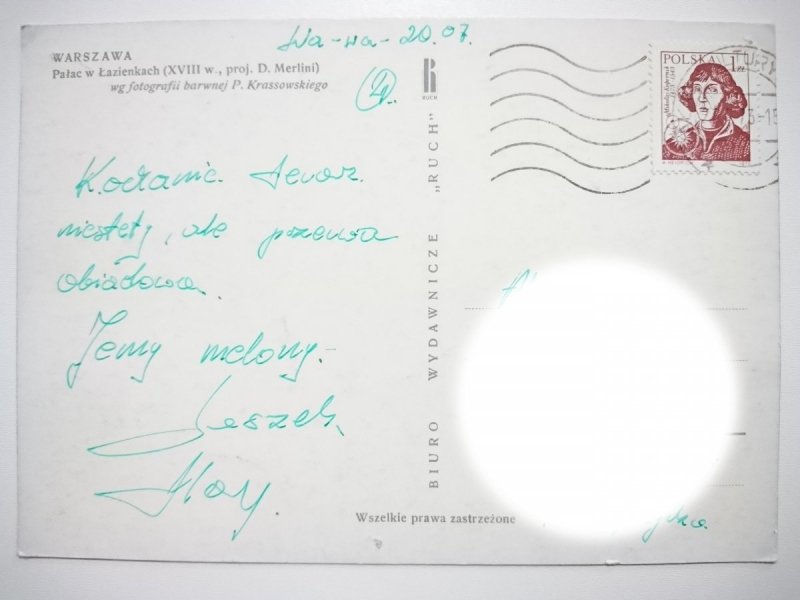 Wa-wa-20.07.
2.
WARSZAWA
Pałac w Łazienkach (XVIII w., proj. D. Merlini)
wg fotografii barwnej P. Krassowskiego
Kochanie. Teraz
niestety, ale przerwa
obiadowa.
Jemy melony.
Leszek
RUCH
BIURO WYDAWNICZE „RUCH”
POLSKA 1 zł
Mikołaj Kopernik
Wszelkie prawa zastrzeżone